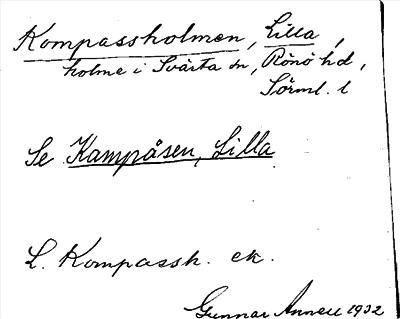 Kompassholmen, Lilla,
holme i Svärta sn, Rönö hd,
Sörml. l
Se Kampåsen, Lilla
L. Kompassh. ek.
Gunnar 1932